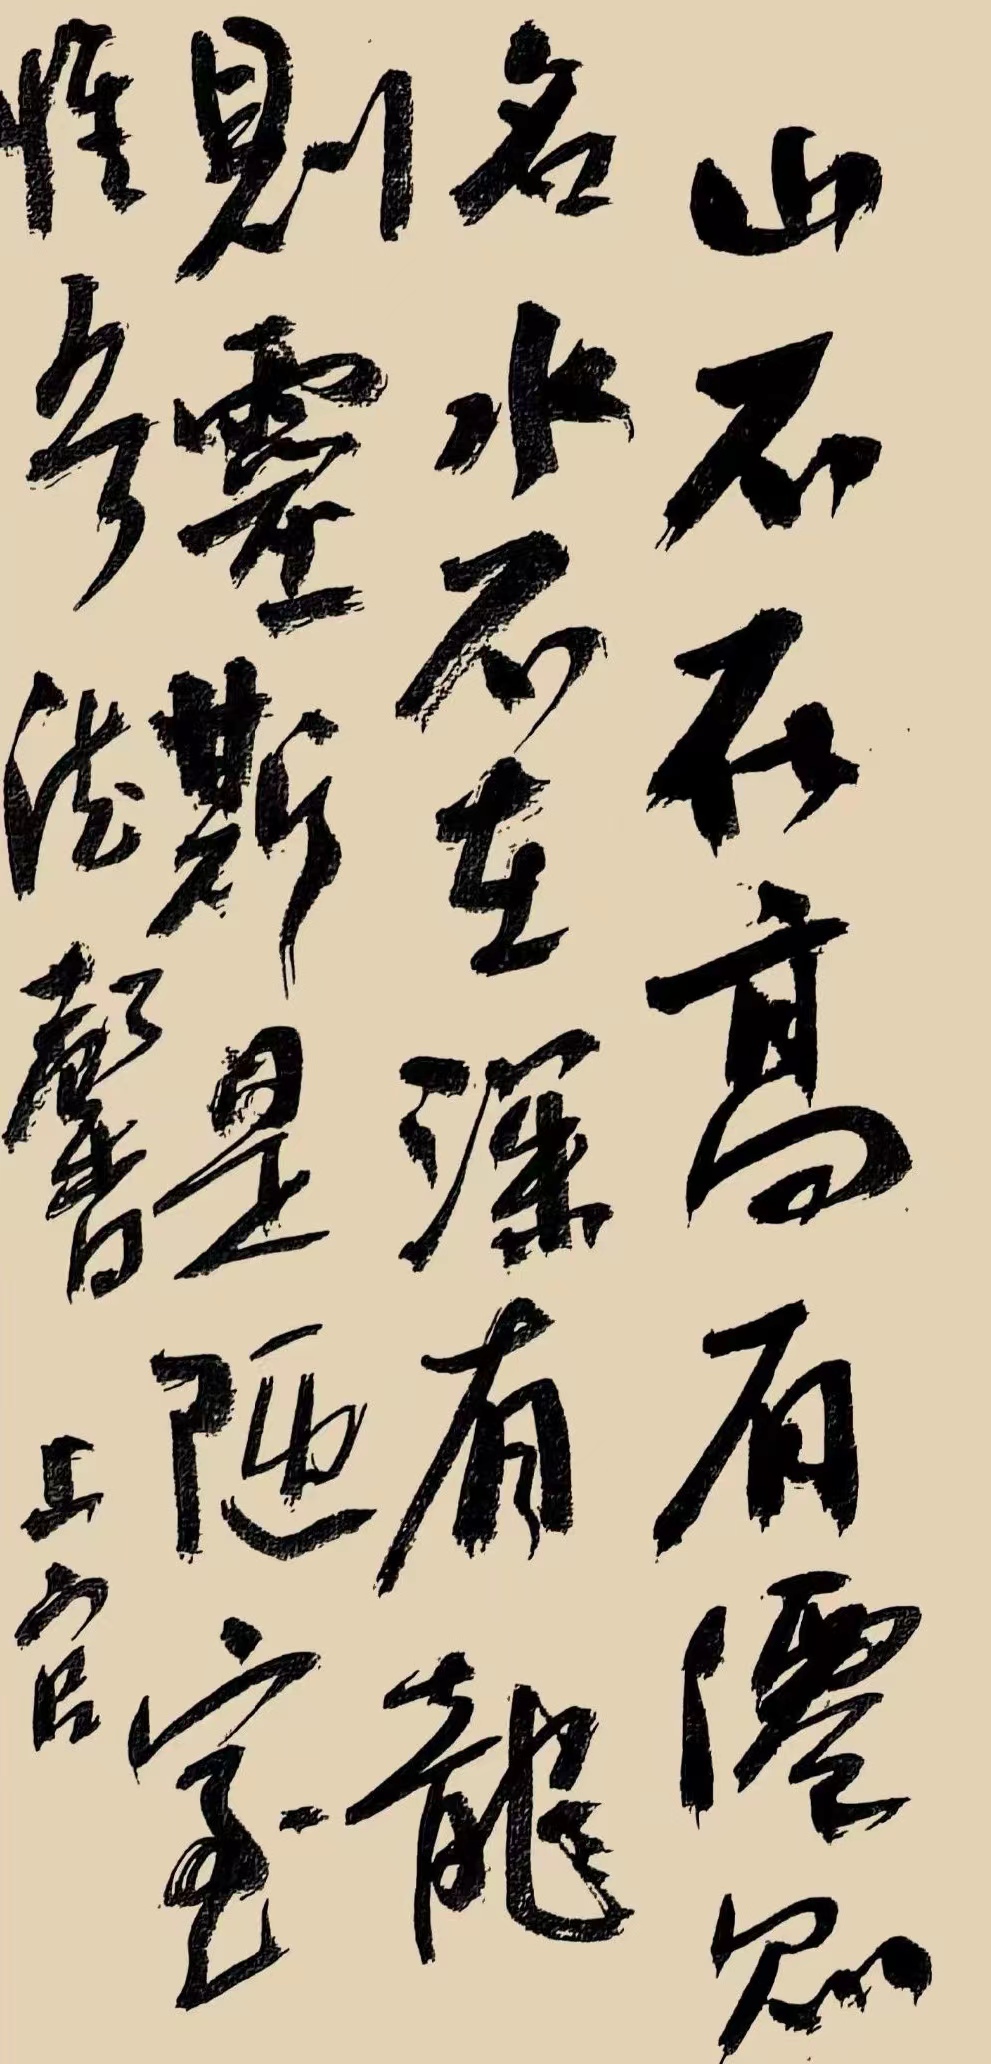 山不在高有僊則
名水不在深有龍
則靈斯是陋室
惟吾德馨 上官